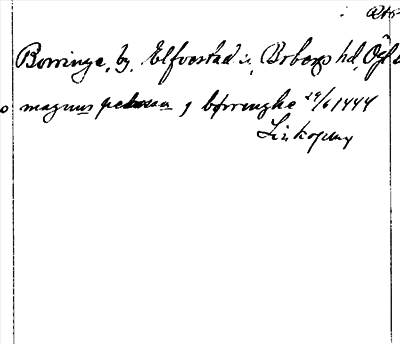 Borringe, by, Elfvestad s., Bobergs hd, Ögl
o magnus petersson j børringhe 29/6 1444
Linköping